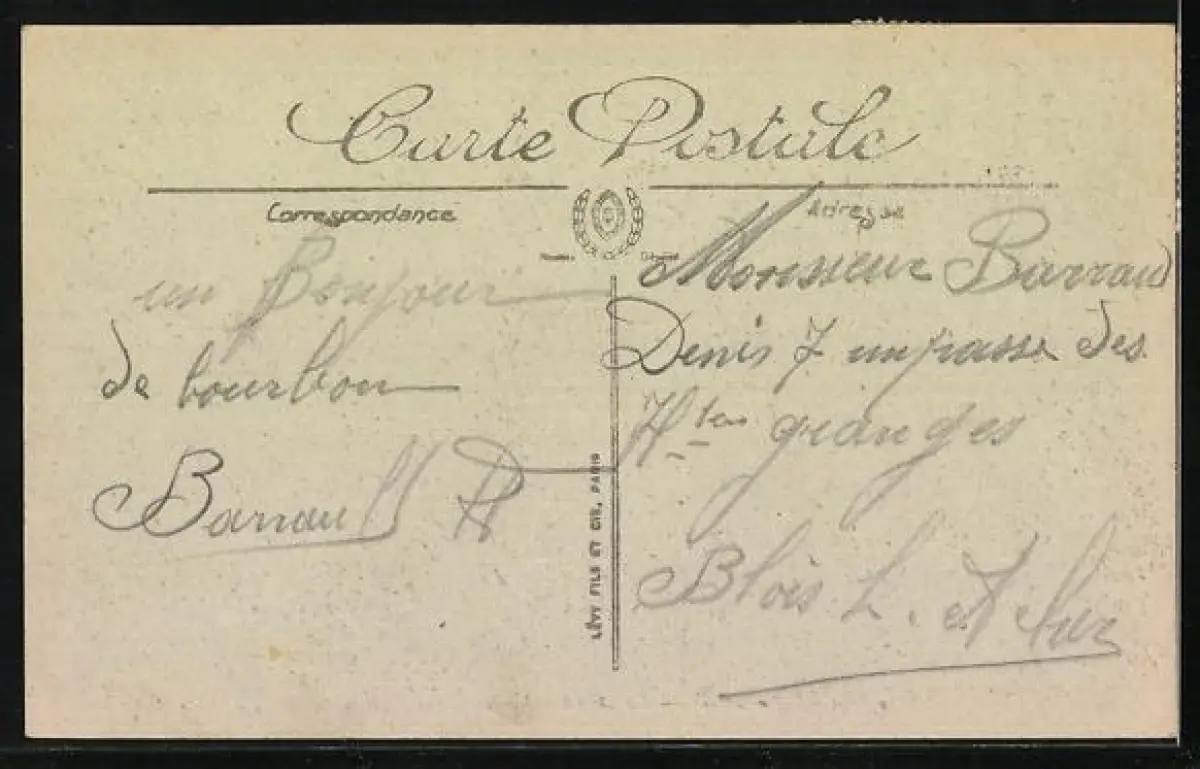 Carte Postale
Correspondance
Adresse
un Bonjour
de bourbon
Barraud R
Monsieur Barraud
Denis 7 impasse des
Htes granges
Blois L. et Cher
LÉVY FILS ET CIE, PARIS